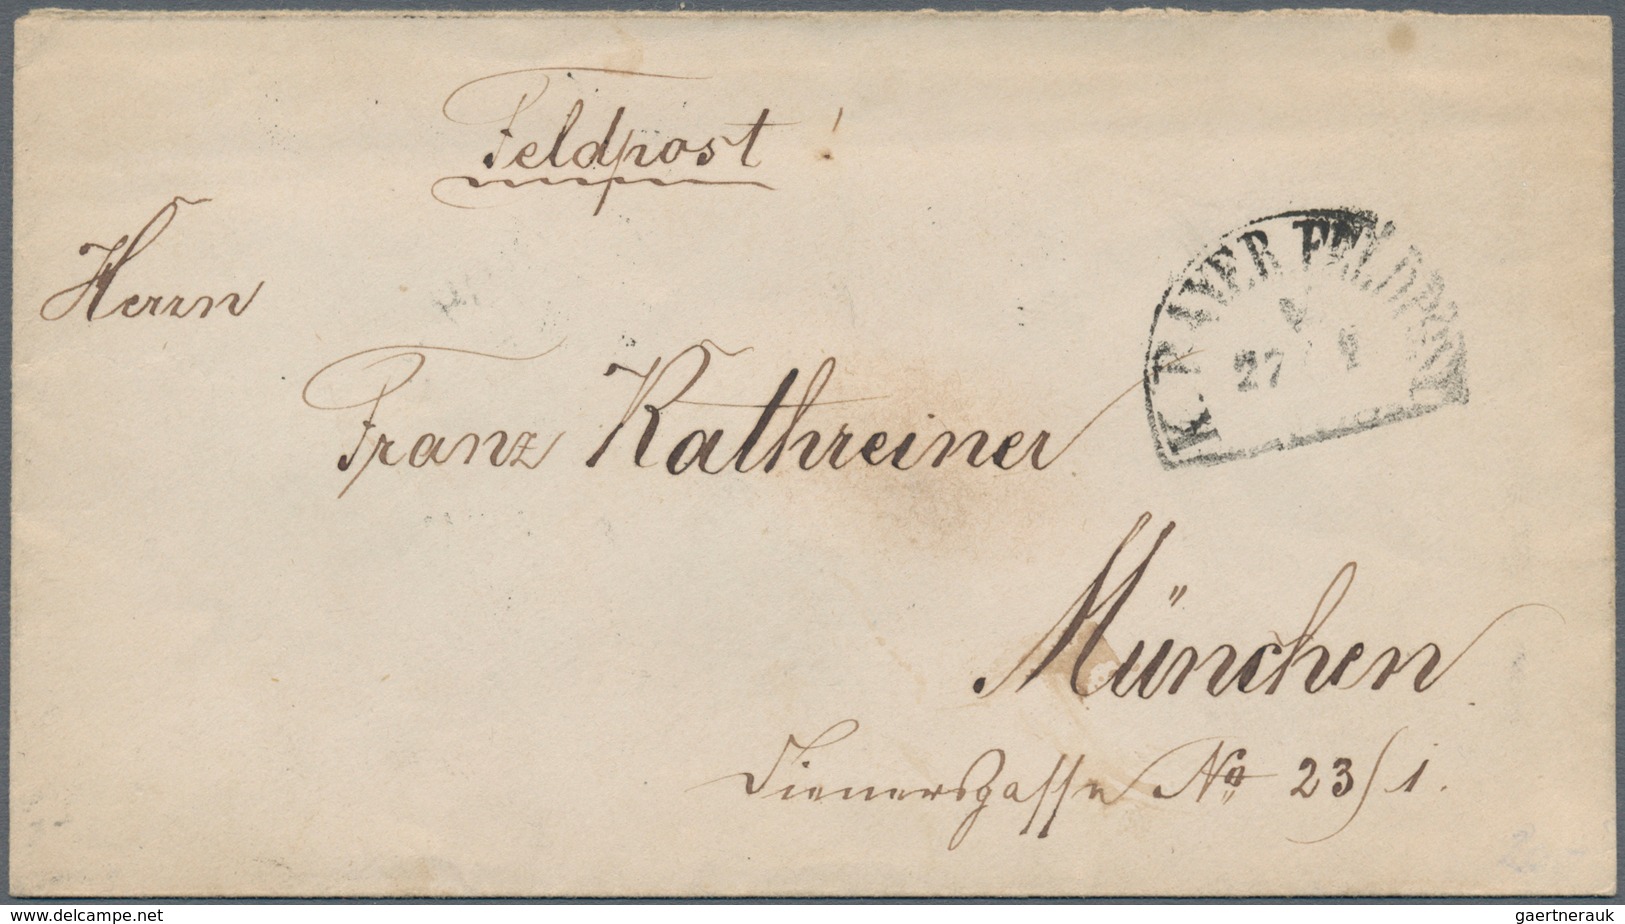 Feldpost!
Herrn
K. BAYER. FELDPOST
27 9
Franz Kathreiner
München
Dienersgasse No 23/1.
www.delcampe.net
gaertnerauk